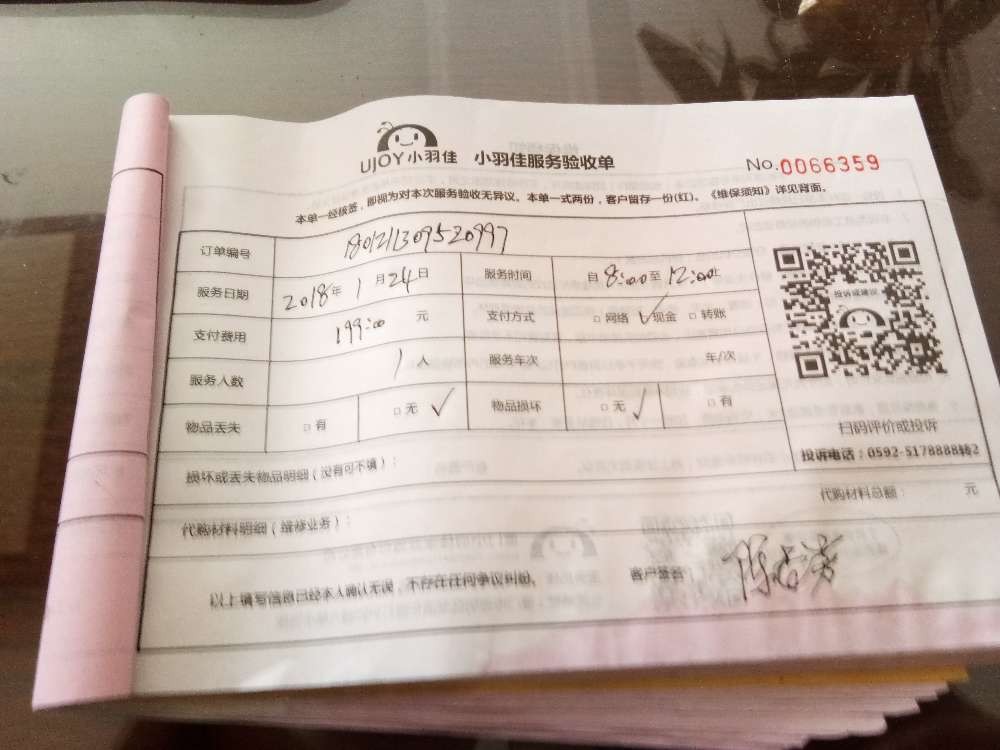 UJOY小羽佳 小羽佳服务验收单 No.0066359
本单一经核签，即视为对本次服务验收无异议。本单一式两份，客户留存一份(红)。《维保须知》详见背面。
订单编号 180121309520997
服务日期 2018年1月24日 服务时间 自8:00至12:00止
支付费用 199:00 元 支付方式 □网络 ✓现金 □转账
服务人数 1人 服务车次 车/次
物品丢失 □有 □无 ✓ 物品损坏 □无 ✓ □有
投诉或建议
扫码评价或投诉
投诉电话：0592-5178888转2
损坏或丢失物品明细（没有可不填）：
代购材料明细（维修业务）： 代购材料总额： 元
以上填写信息已经本人确认无误，不存在任何争议纠纷。 客户签名：